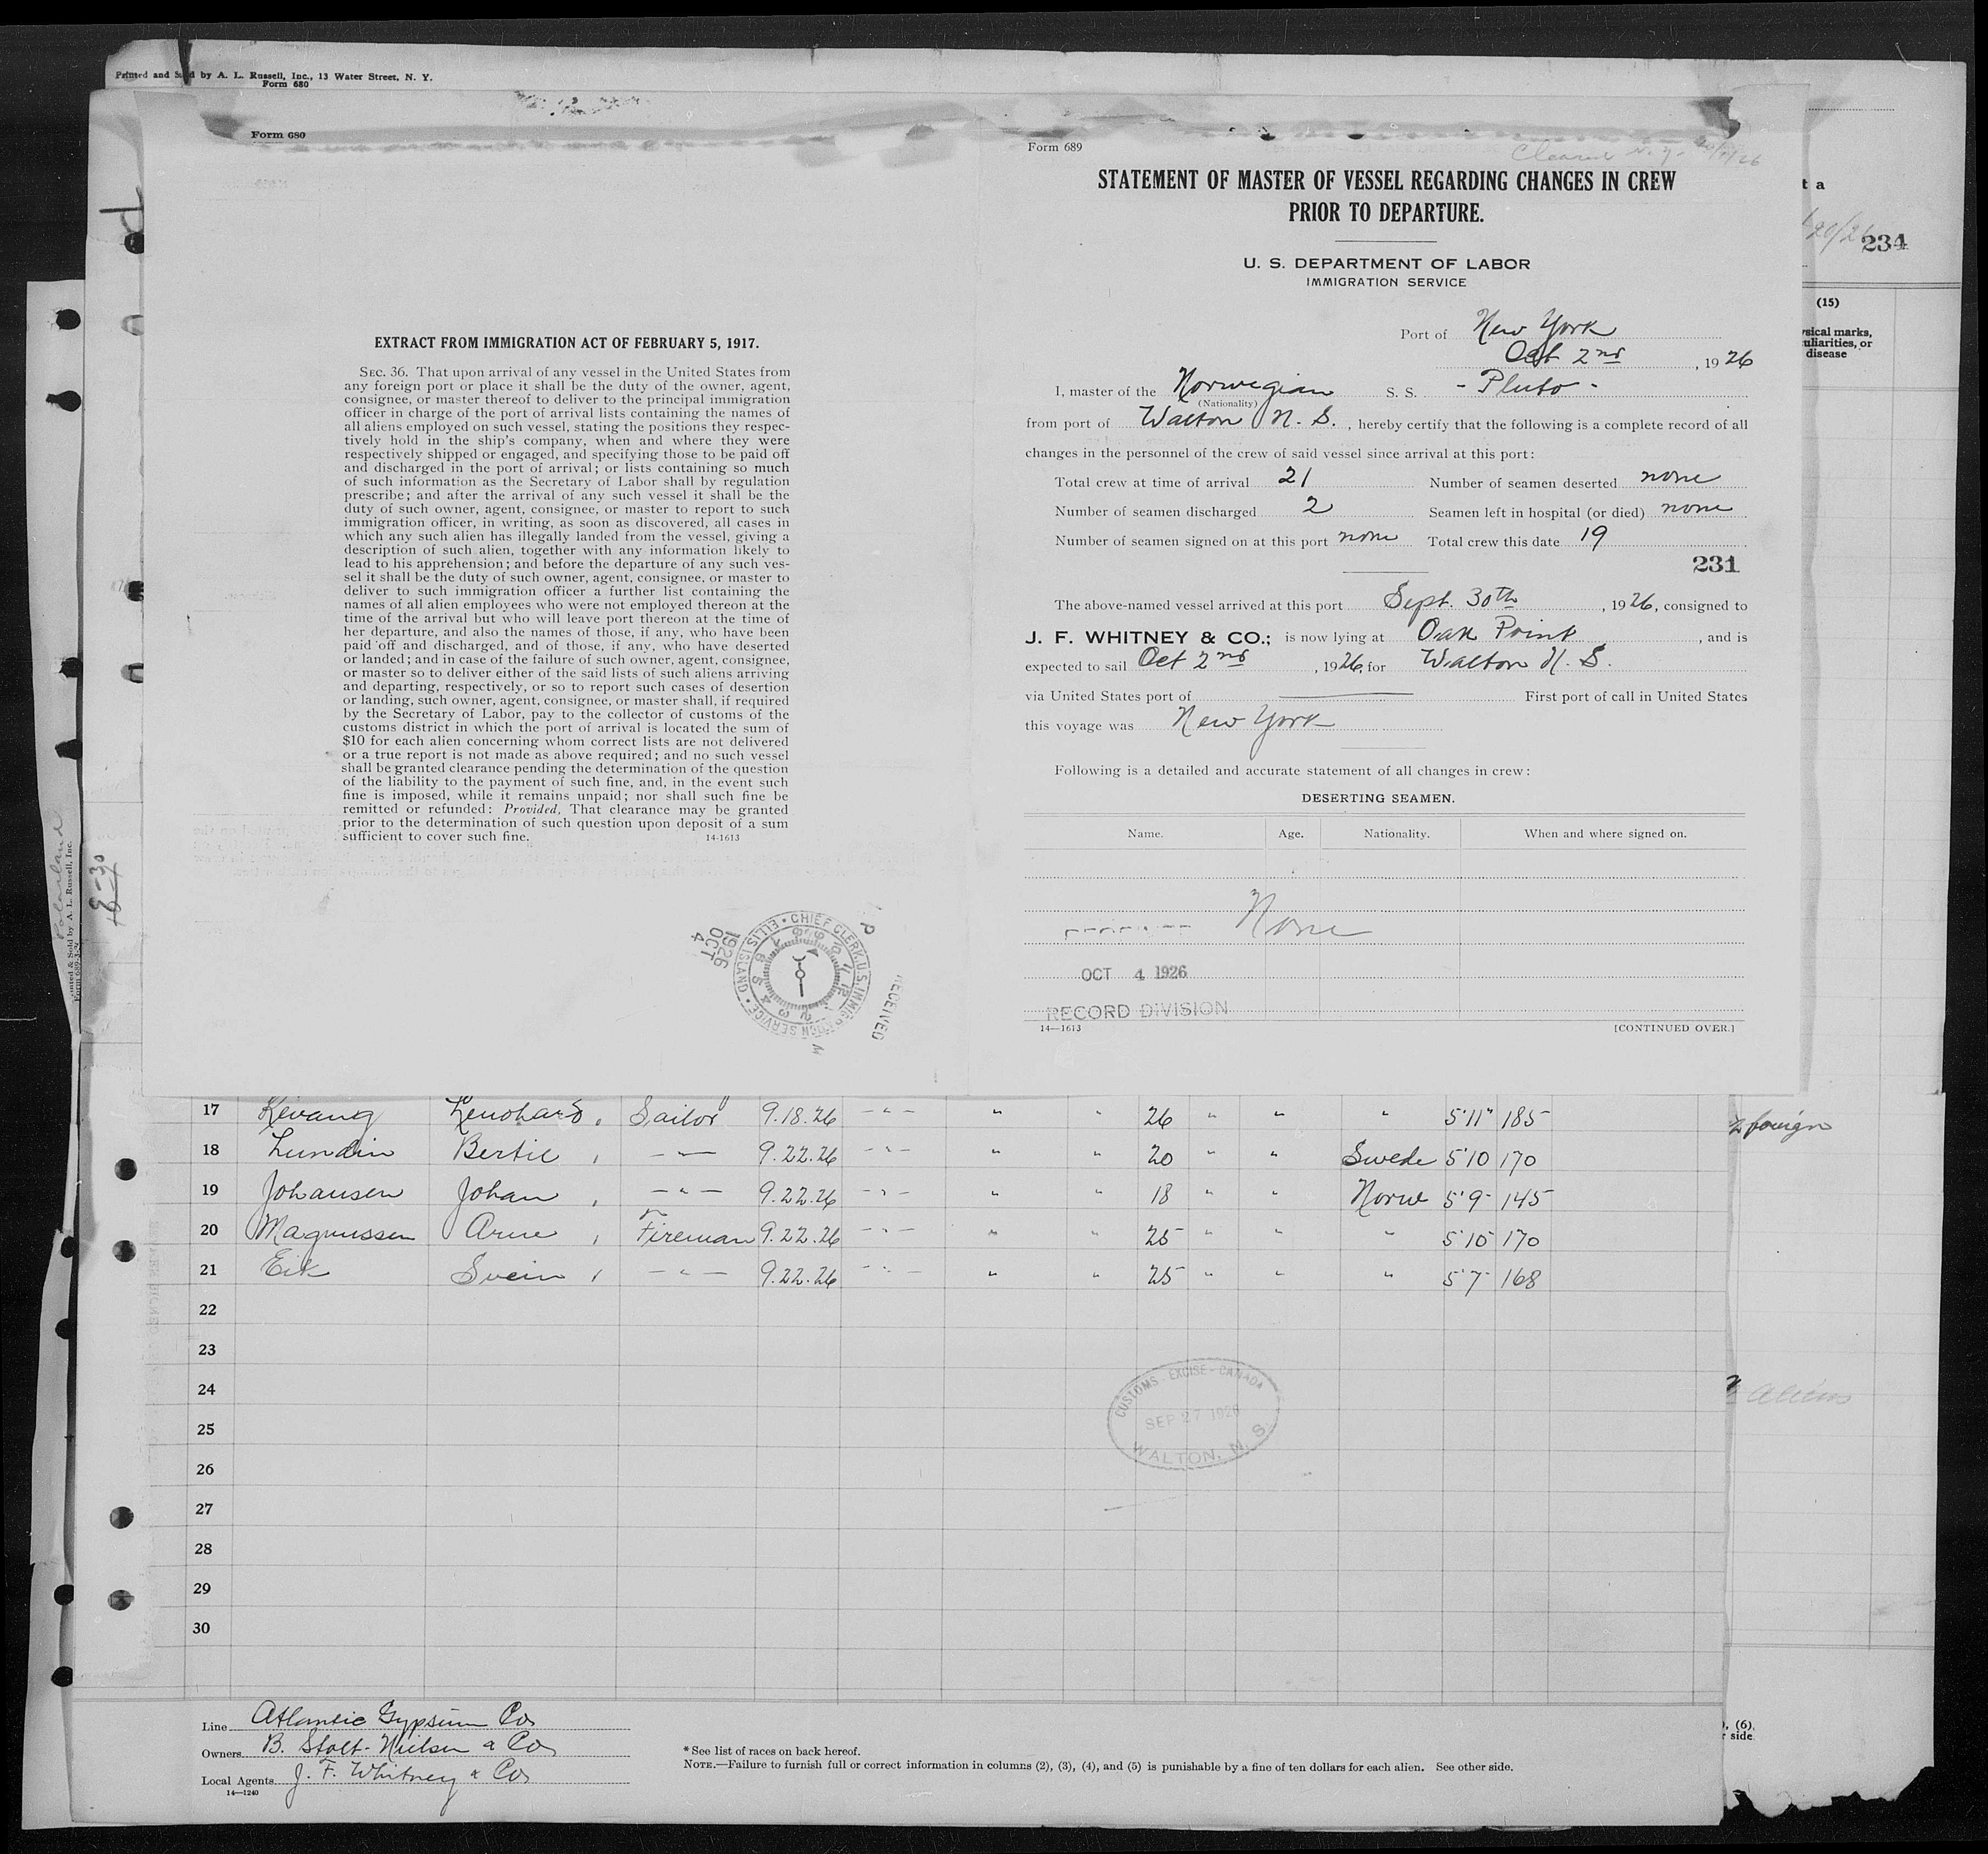 Printed and Sold by A. L. Russell, Inc., 13 Water Street, N. Y.
Form 680
Form 680
EXTRACT FROM IMMIGRATION ACT OF FEBRUARY 5, 1917.
SEC. 36. That upon arrival of any vessel in the United States from
any foreign port or place it shall be the duty of the owner, agent,
consignee, or master thereof to deliver to the principal immigration
officer in charge of the port of arrival lists containing the names of
all aliens employed on such vessel, stating the positions they respec-
tively hold in the ship's company, when and where they were
respectively shipped or engaged, and specifying those to be paid off
and discharged in the port of arrival; or lists containing so much
of such information as the Secretary of Labor shall by regulation
prescribe; and after the arrival of any such vessel it shall be the
duty of such owner, agent, consignee, or master to report to such
immigration officer, in writing, as soon as discovered, all cases in
which any such alien has illegally landed from the vessel, giving a
description of such alien, together with any information likely to
lead to his apprehension; and before the departure of any such ves-
sel it shall be the duty of such owner, agent, consignee, or master to
deliver to such immigration officer a further list containing the
names of all alien employees who were not employed thereon at the
time of the arrival but who will leave port thereon at the time of
her departure, and also the names of those, if any, who have been
paid off and discharged, and of those, if any, who have deserted
or landed; and in case of the failure of such owner, agent, consignee,
or master so to deliver either of the said lists of such aliens arriving
and departing, respectively, or so to report such cases of desertion
or landing, such owner, agent, consignee, or master shall, if required
by the Secretary of Labor, pay to the collector of customs of the
customs district in which the port of arrival is located the sum of
$10 for each alien concerning whom correct lists are not delivered
or a true report is not made as above required; and no such vessel
shall be granted clearance pending the determination of the question
of the liability to the payment of such fine, and, in the event such
fine is imposed, while it remains unpaid; nor shall such fine be
remitted or refunded: Provided, That clearance may be granted
prior to the determination of such question upon deposit of a sum
sufficient to cover such fine. 14-1613
CHIEF CLERK, U.S. IMMIGRATION SERVICE ELLIS ISLAND
1926 OCT 4
RECEIVED
Form 689
Cleared N.Y.
STATEMENT OF MASTER OF VESSEL REGARDING CHANGES IN CREW
PRIOR TO DEPARTURE.
U. S. DEPARTMENT OF LABOR
IMMIGRATION SERVICE
Port of New York
Oct 2nd, 1926
I, master of the Norwegian S. S. - Pluto -
(Nationality)
from port of Walton N. S., hereby certify that the following is a complete record of all
changes in the personnel of the crew of said vessel since arrival at this port:
Total crew at time of arrival 21 Number of seamen deserted none
Number of seamen discharged 2 Seamen left in hospital (or died) none
Number of seamen signed on at this port none Total crew this date 19
231
The above-named vessel arrived at this port Sept. 30th, 1926, consigned to
J. F. WHITNEY & CO.; is now lying at Oak Point, and is
expected to sail Oct 2nd, 1926, for Walton N. S.
via United States port of First port of call in United States
this voyage was New York
Following is a detailed and accurate statement of all changes in crew:
DESERTING SEAMEN.
Name. Age. Nationality. When and where signed on.
None
OCT 4 1926
RECORD DIVISION
14—1613 [CONTINUED OVER.]
t a
234
(15)
ysical marks,
uliarities, or
disease
17 Kevang Lenohard, Sailor 9.18.26 - " - " " 26 " " " 5'11" 185
18 Lundin Bertil, - " - 9.22.26 - " - " " 20 " " Swede 5'10 170
19 Johansen Johan, - " - 9.22.26 - " - " " 18 " " Norw 5'9 145
20 Magnussen Arne, Fireman 9.22.26 - " - " " 25 " " " 5'10 170
21 Eik Svein, - " - 9.22.26 - " - " " 25 " " " 5'7 168
22
23
24
25
26
27
28
29
30
foreign
aliens
CUSTOMS - EXCISE - CANADA
SEP 27 1926
WALTON, N. S.
Line Atlantic Gypsum Co
Owners B. Stolt-Nielsen & Co
Local Agents J. F. Whitney & Co
14—1240
* See list of races on back hereof.
NOTE.—Failure to furnish full or correct information in columns (2), (3), (4), and (5) is punishable by a fine of ten dollars for each alien. See other side.
, (6).
r side
Printed & Sold by A. L. Russell, Inc.